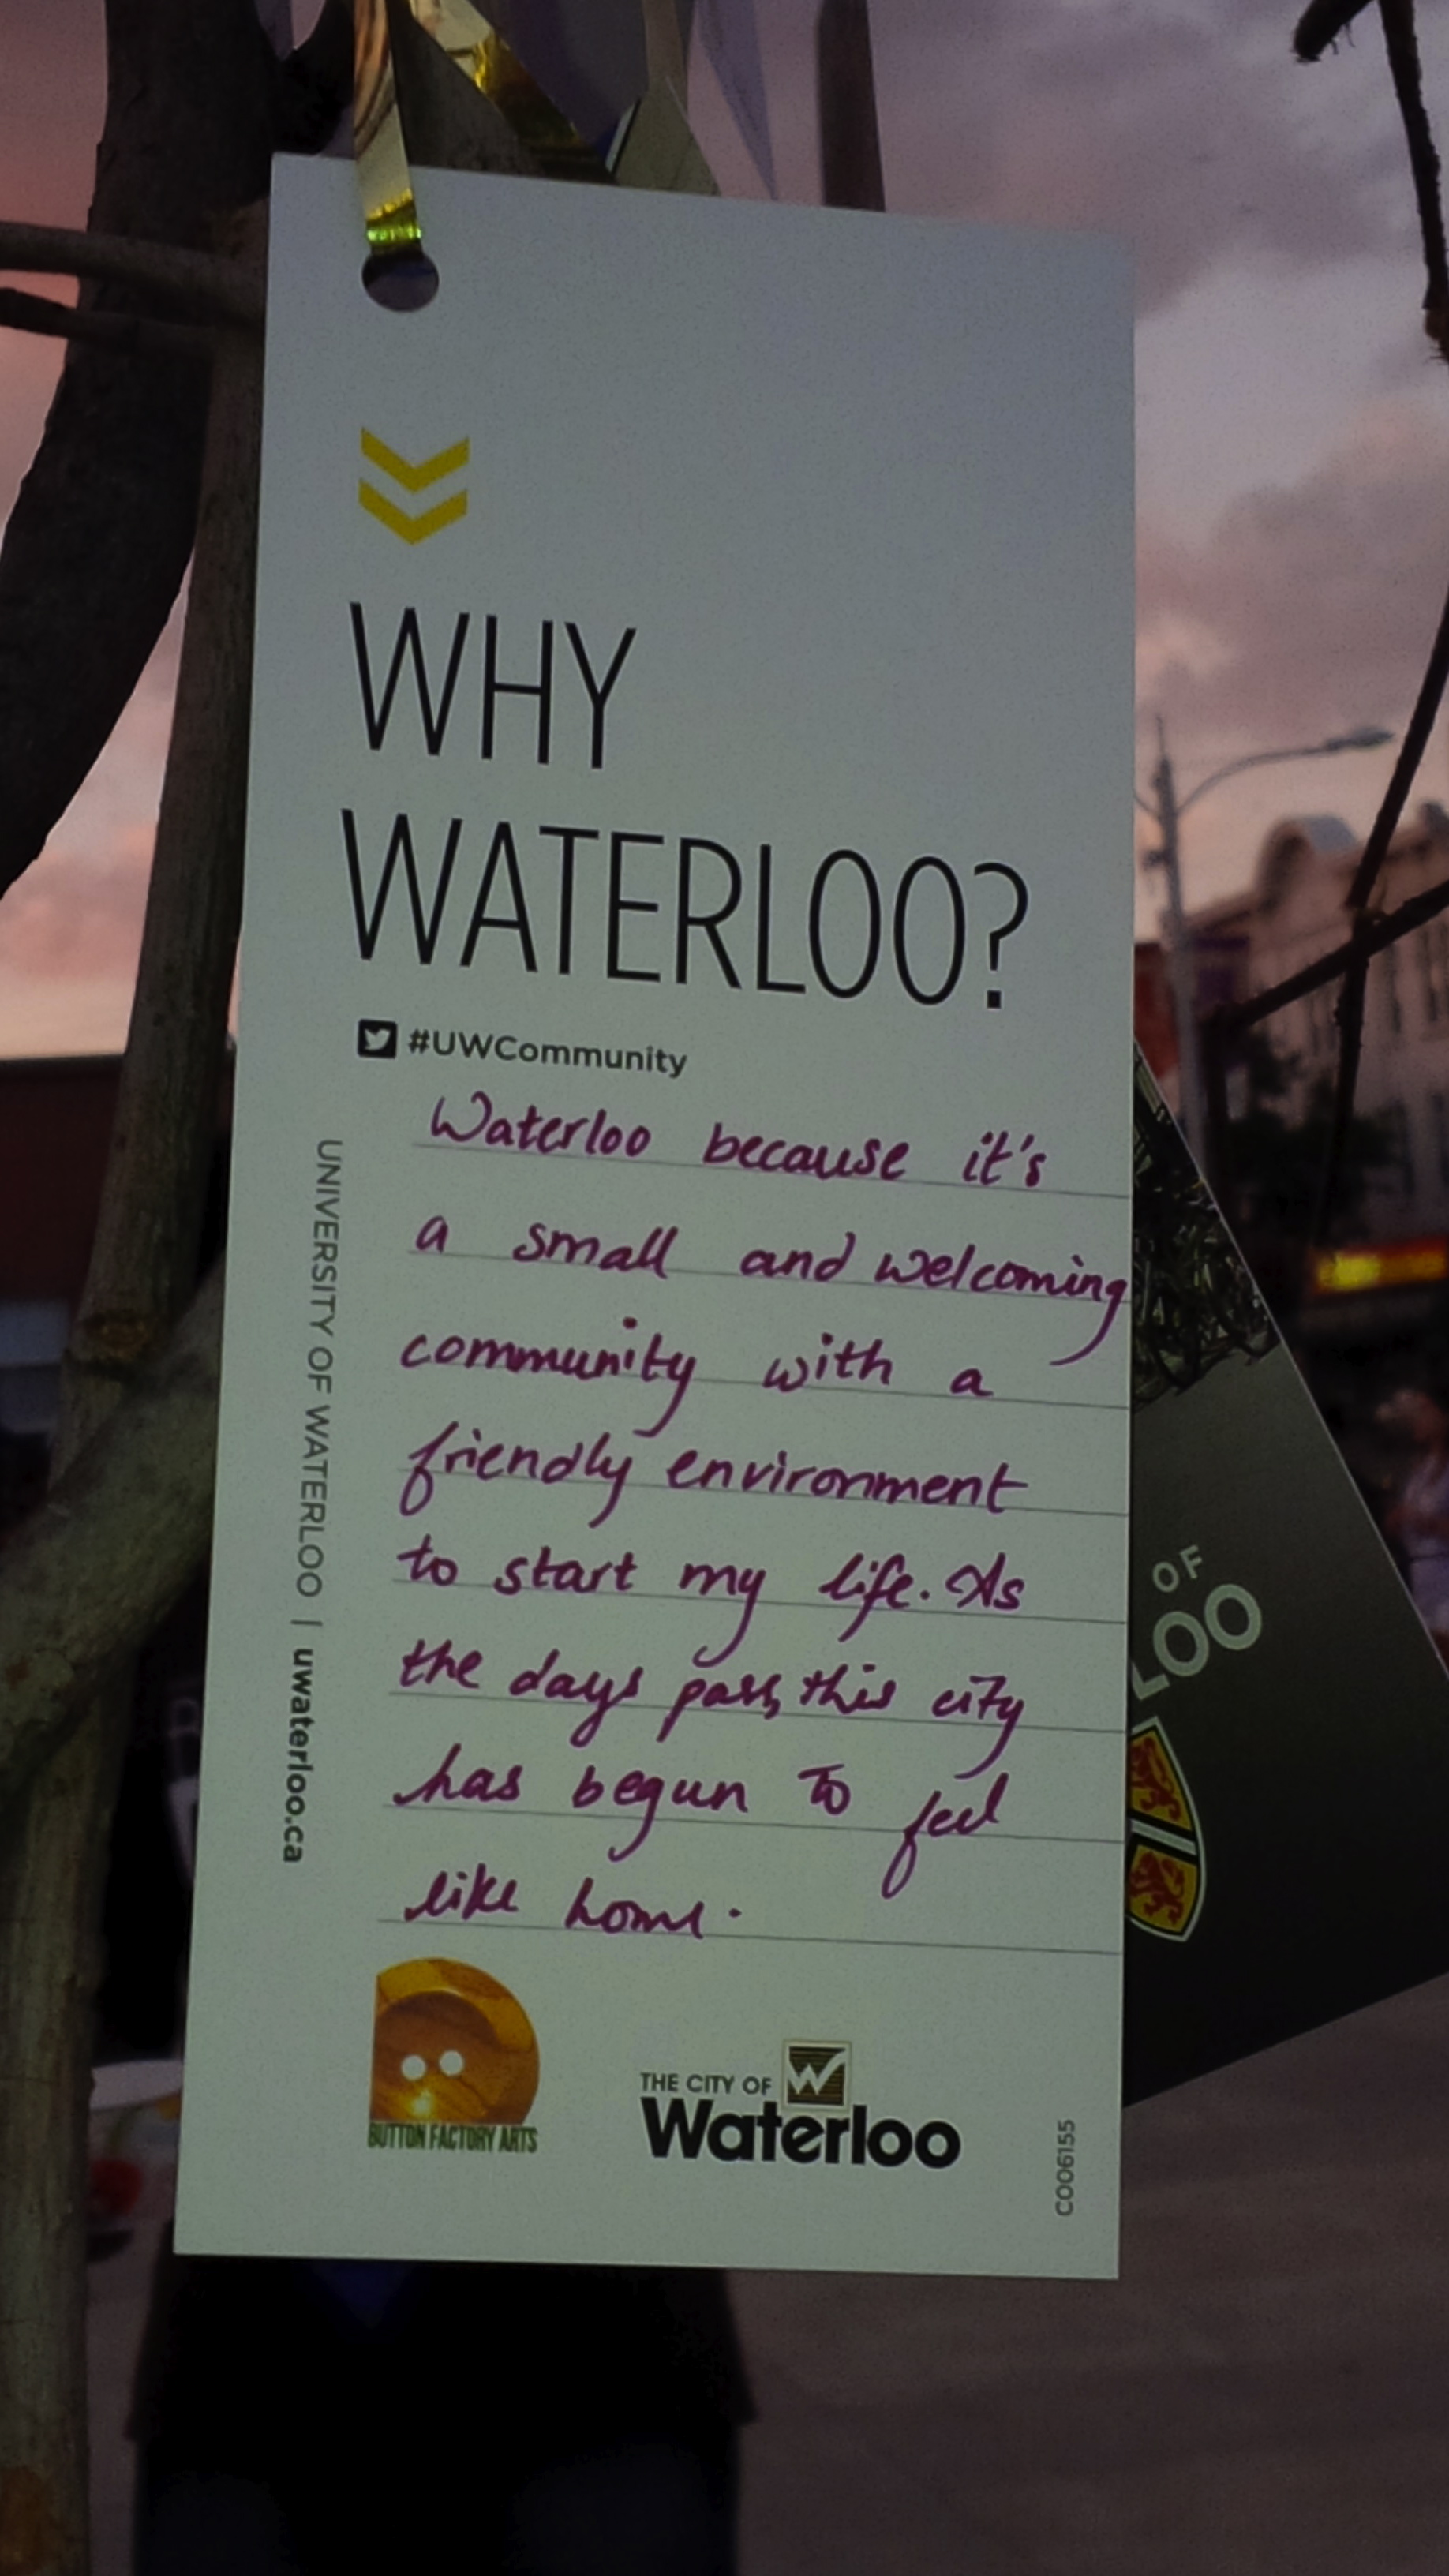 WHY
WATERLOO?
#UWCommunity
Waterloo because it's
a small and welcoming
community with a
friendly environment
to start my life. As
the days pass, this city
has begun to feel
like home.
UNIVERSITY OF WATERLOO | uwaterloo.ca
BUTTON FACTORY ARTS
THE CITY OF
Waterloo
C006155
OF
LOO